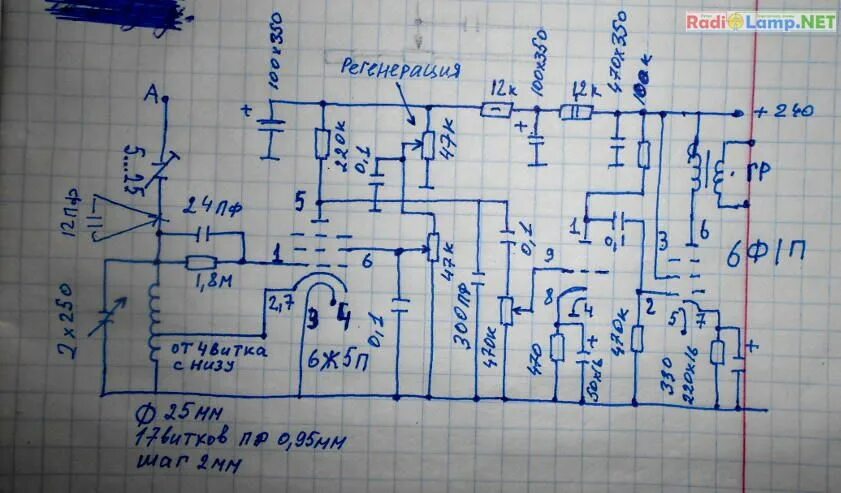 RadioLamp.NET
100х350
Регенерация
100х350
470х350
100к
А
+
12к
12к
+
+ 240
5...25
220к
0,1
47к
ТР
12пф
24пф
5
1
0,1
3
6
6Ф1П
1
6
47к
0,1
9
1,8м
2,7
8
4
2
2 х 250
3
4
0,1
300пф
5
7
от 4 витка
с низу
6Ж5П
470к
470
+
50х16
470к
330
220х16
+
Ф 25мм
17 витков пр 0,95мм
шаг 2мм